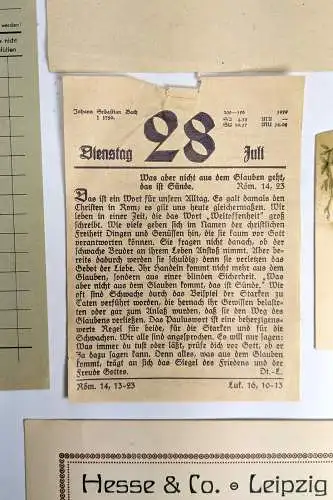 nicht
füllen
Johann Sebastian Bach
† 1750.
28
209—156
1959
Dienstag
Juli
Was aber nicht aus dem Glauben geht,
das ist Sünde. Röm. 14, 23
Das ist ein Wort für unsern Alltag. Es galt damals den
Christen in Rom; es gilt uns heute gleichermaßen. Wir
leben in einer Zeit, die das Wort „Weltoffenheit" groß
schreibt. Wie viele geben sich im Namen der christlichen
Freiheit Dingen und Genüssen hin, die sie kaum vor Gott
verantworten können. Sie fragen nicht danach, ob der
schwache Bruder an ihrem Leben Anstoß nimmt. Aber be-
reits dadurch werden sie schuldig; denn sie verletzen das
Gebot der Liebe. Ihr Handeln kommt nicht mehr aus dem
Glauben, sondern aus einer blinden Sicherheit. „Was
aber nicht aus dem Glauben kommt, das ist Sünde." Wie
oft sind Schwache durch das Beispiel der Starken zu
Taten verführt worden, die hernach ihr Gewissen belaste-
ten oder gar zum Anlaß wurden, daß sie den Weg des
Glaubens verließen. Das Pauluswort ist eine beherzigens-
werte Regel für beide, für die Starken und für die
Schwachen. Wir alle sind angesprochen. Es will nur sagen:
Was immer du tust oder läßt, prüfe dich vor Gott, ob er
Ja dazu sagen kann. Denn alles, was aus dem Glauben
kommt, trägt an sich das Siegel des Friedens und der
Freude Gottes. Dt.-L.
Röm. 14, 13-23 Luk. 16, 10-13
Hesse & Co. • Leipzig